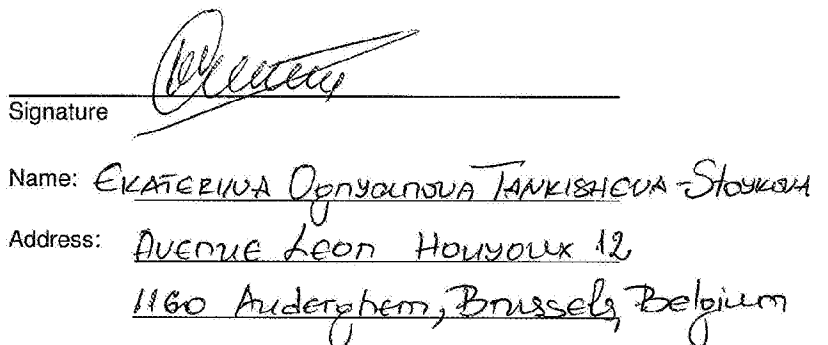 Signature
Name: EKATERINA OGNYANOVA TANKISHEVA-STOYKOVA
Address: AVENUE LEON HOUYOUX 12
1160 Auderghem, Brussels, Belgium